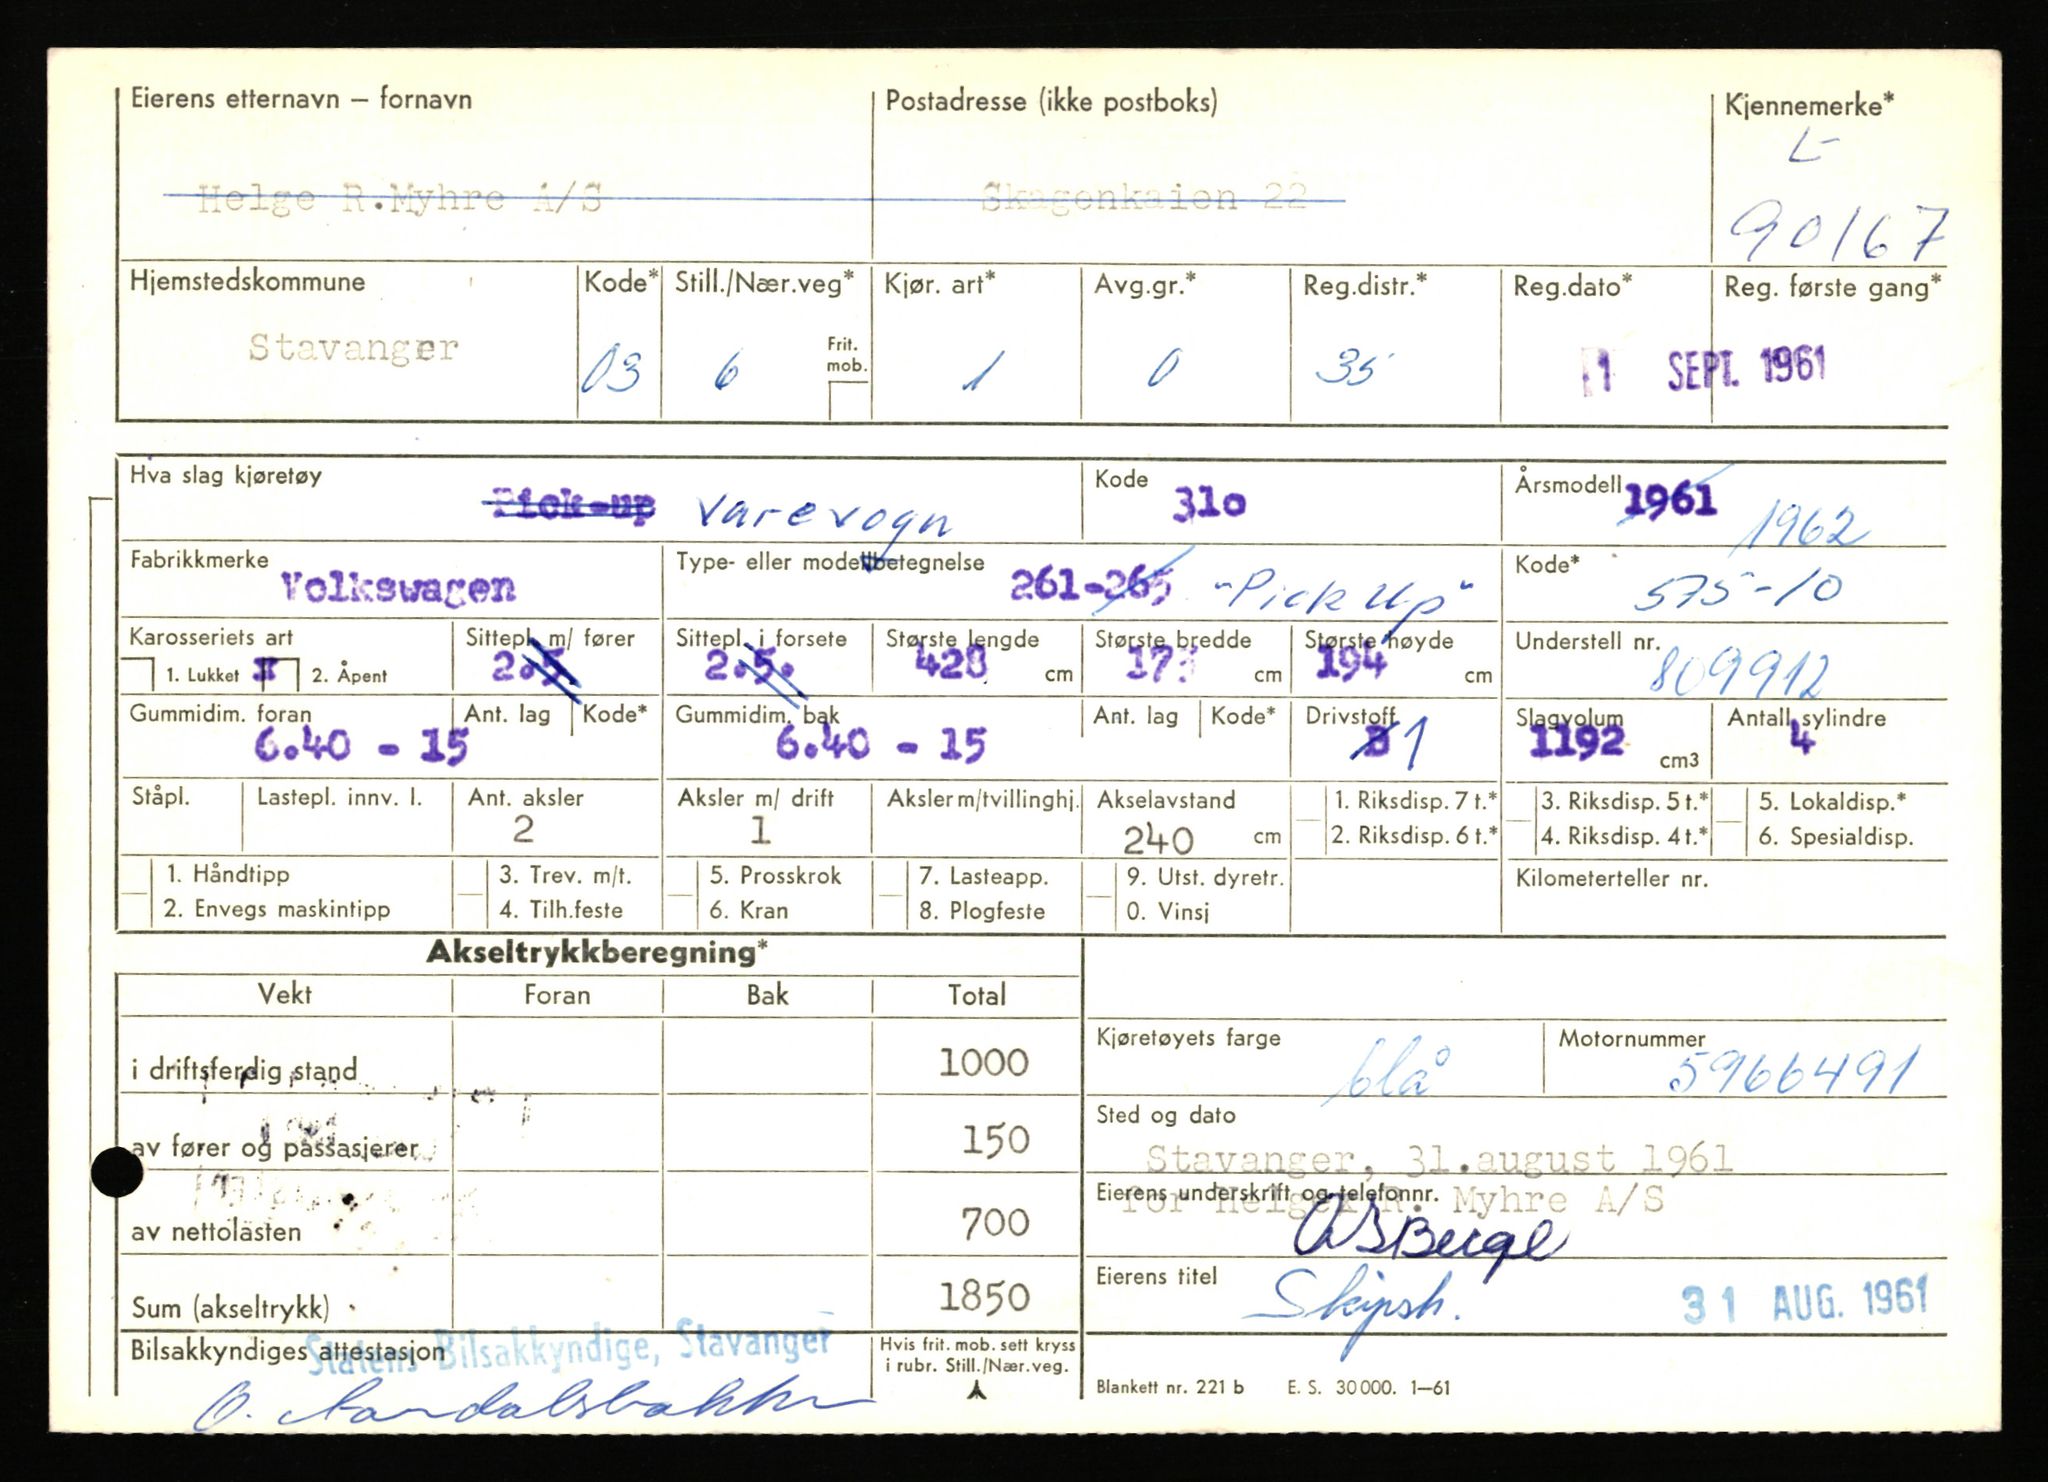 Eierens etternavn – fornavn Postadresse (ikke postboks) Kjennemerke*
L-
Helge R.Myhre A/S Skagenkaien 22 90167
Hjemstedskommune Kode* Still./Nær.veg* Kjør. art* Avg.gr.* Reg.distr.* Reg.dato* Reg. første gang*
Stavanger 03 6 Frit. mob. 1 0 35 1 SEPT. 1961
Hva slag kjøretøy Kode Årsmodell
Pick-up varevogn 310 1961 1962
Fabrikkmerke Type- eller modellbetegnelse Kode*
Volkswagen 261-265 "Pick Up" 575-10
Karosseriets art Sittepl. m/ fører Sittepl. i forsete Største lengde Største bredde Største høyde Understell nr.
1. Lukket X 2. Åpent 2.5. 2.5. 428 cm 173 cm 194 cm 809912
Gummidim. foran Ant. lag Kode* Gummidim. bak Ant. lag Kode* Drivstoff Slagvolum Antall sylindre
6.40 - 15 6.40 - 15 B 1 1192 cm3 4
Ståpl. Lastepl. innv. l. Ant. aksler Aksler m/ drift Aksler m/tvillinghj. Akselavstand 1. Riksdisp. 7 t.* 3. Riksdisp. 5 t.* 5. Lokaldisp.*
2 1 240 cm 2. Riksdisp. 6 t.* 4. Riksdisp. 4 t.* 6. Spesialdisp.
1. Håndtipp 3. Trev. m/t. 5. Prosskrok 7. Lasteapp. 9. Utst. dyretr. Kilometerteller nr.
2. Envegs maskintipp 4. Tilh.feste 6. Kran 8. Plogfeste 0. Vinsj
Akseltrykkberegning*
Vekt Foran Bak Total
i driftsferdig stand 1000
av fører og passasjerer 150
av nettolasten 700
Sum (akseltrykk) 1850
Kjøretøyets farge Motornummer
blå 5966491
Sted og dato
Stavanger, 31.august 1961
Eierens underskrift og telefonnr.
for Helgek R. Myhre A/S
Eierens titel
Skipsh. 31 AUG. 1961
Bilsakkyndiges attestasjon
Statens Bilsakkyndige, Stavanger
Hvis frit. mob. sett kryss
i rubr. Still./Nær.veg.
Blankett nr. 221 b E. S. 30 000. 1–61